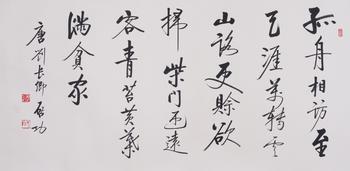 孤舟相訪至
天涯萬轉雲
山路更賒欲
掃柴門迎遠
客青苔黃葉
滿貧家
唐劉長卿 啟功